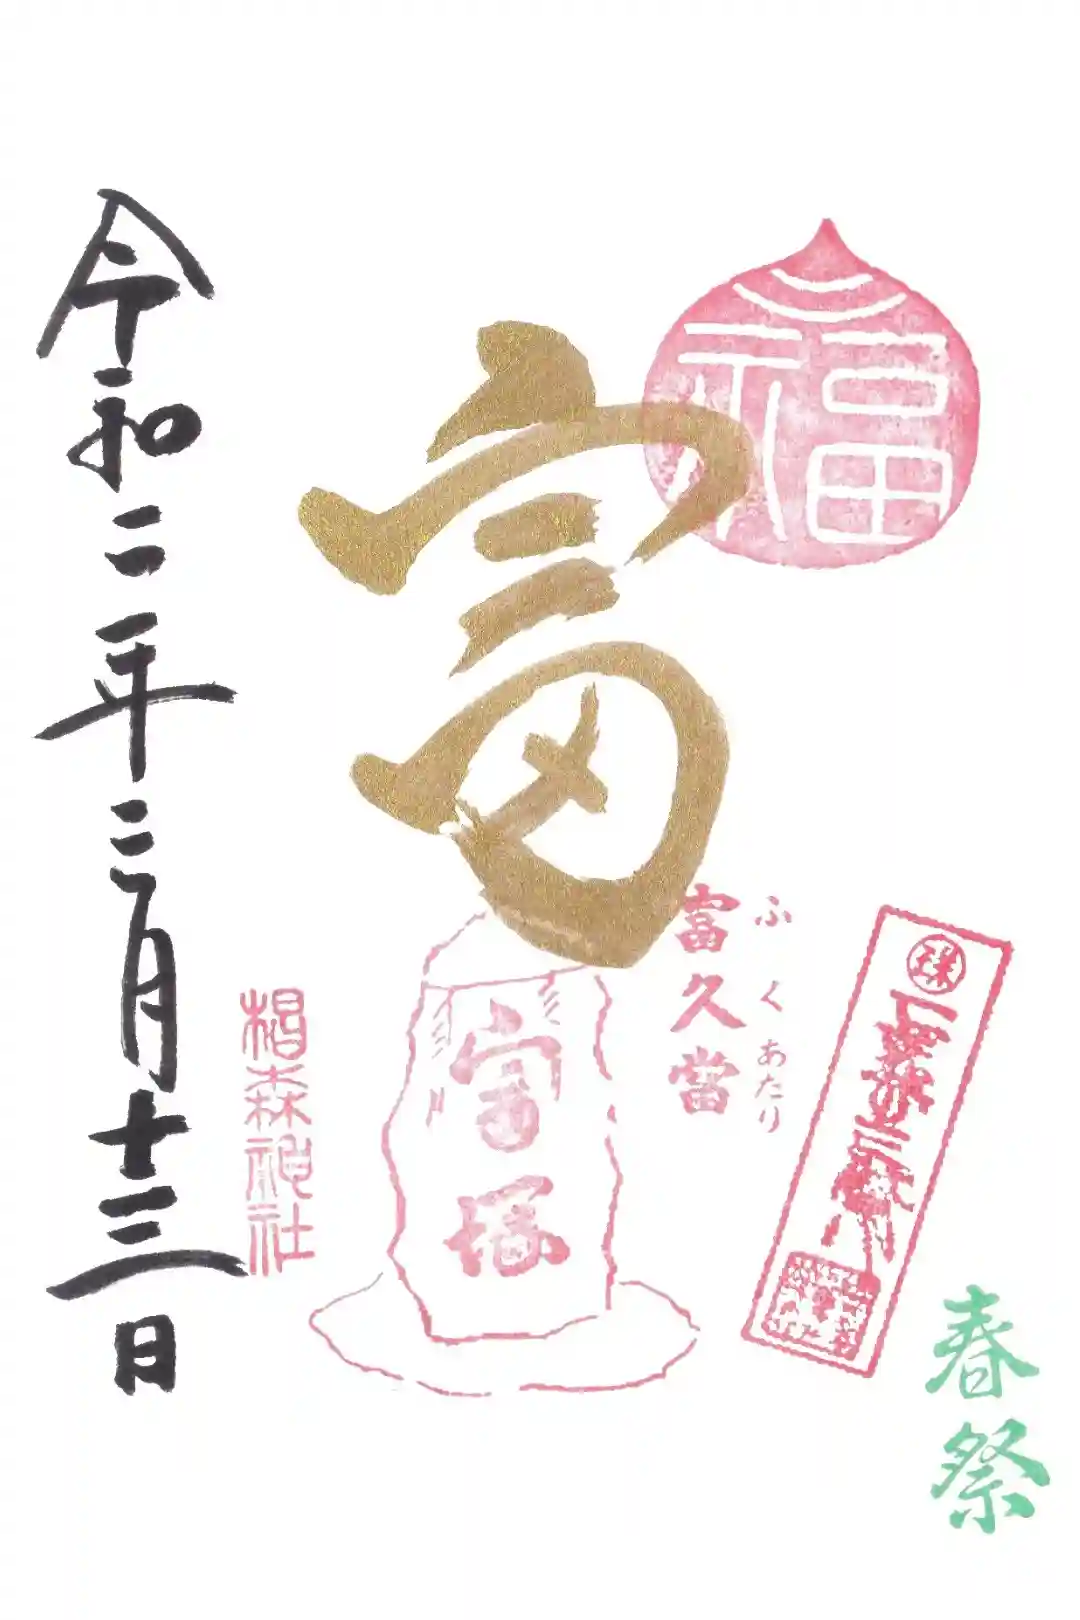 福
富
ふくあたり
富久當
富塚
春祭
椙森神社
令和二年三月十三日